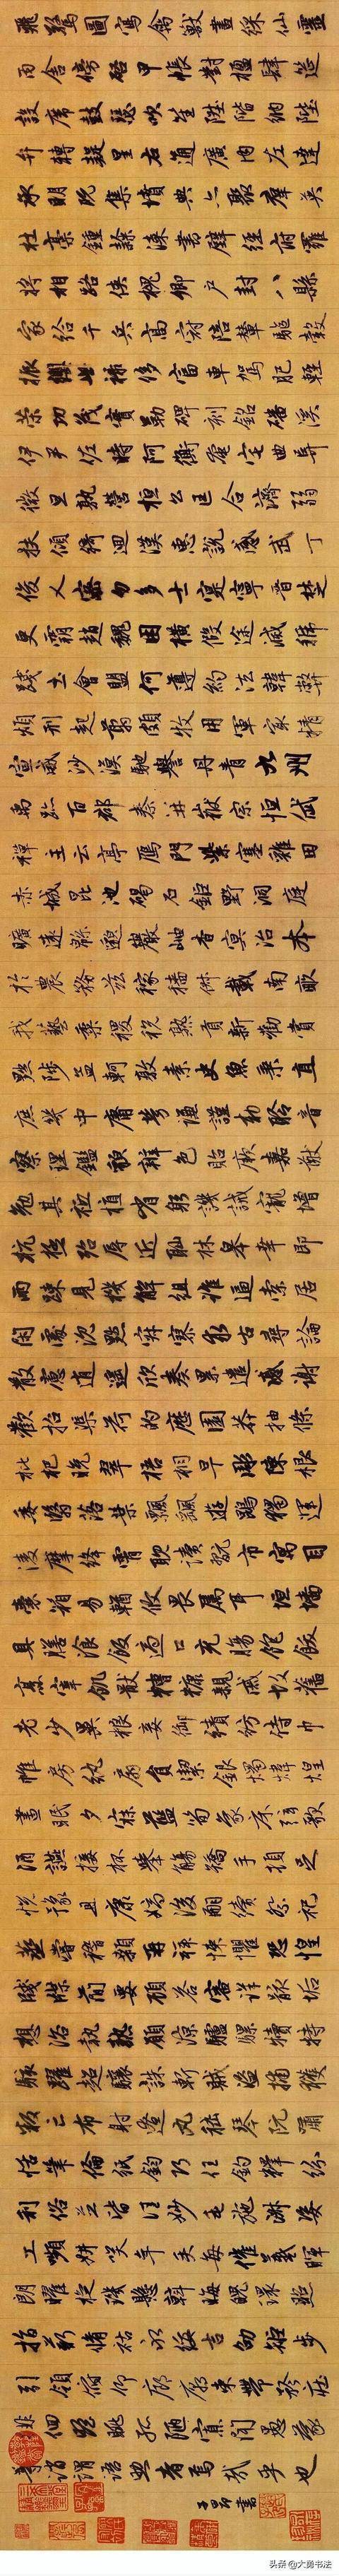 飛驚圖寫禽獸畫綵仙靈
丙舍傍啓甲帳對楹肆筵
設席鼓瑟吹笙陞階納陛
弁轉疑星右通廣內左達
承明既集墳典亦聚羣英
杜稾鍾隸漆書壁經府羅
將相路俠槐卿戶封八縣
家給千兵高冠陪輦驅轂
振纓世祿侈富車駕肥輕
策功茂實勒碑刻銘磻溪
伊尹佐時阿衡奄宅曲阜
微旦孰營桓公匡合濟弱
扶傾綺迴漢惠說感武丁
俊乂密勿多士寔寧晉楚
更霸趙魏困橫假途滅虢
踐土會盟何遵約法韓弊
煩刑起翦頗牧用軍最精
宣威沙漠馳譽丹青九州
禹跡百郡秦并嶽宗恒岱
禪主云亭鴈門紫塞雞田
赤城昆池碣石鉅野洞庭
曠遠緜邈巖岫杳冥治本
於農務茲稼穡俶載南畝
我藝黍稷稅熟貢新勸賞
黜陟孟軻敦素史魚秉直
庶幾中庸勞謙謹勑聆音
察理鑑貌辨色貽厥嘉猷
勉其祗植省躬譏誡寵增
抗極殆辱近恥林皋幸即
兩疎見機解組誰逼索居
閑處沉默寂寥求古尋論
散慮逍遙欣奏累遣慼謝
歡招渠荷的歷園莽抽條
枇杷晚翠梧桐早彫陳根
委翳落葉飄颻遊鵾獨運
凌摩絳霄耽讀翫市寓目
囊箱易輶攸畏屬耳垣墻
具膳飡飯適口充腸飽飫
烹宰飢猒糟糠親戚故舊
老少異粮妾御績紡侍巾
帷房紈扇員潔銀燭煒煌
晝眠夕寐藍筍象床弦歌
酒讌接杯舉觴矯手頓足
悅豫且康嫡後嗣續祭祀
蒸嘗稽顙再拜悚懼恐惶
牋牒簡要顧答審詳骸垢
想浴執熱願涼驢騾犢特
駭躍超驤誅斬賊盜捕獲
叛亡布射遼丸嵇琴阮嘯
恬筆倫紙鈞巧任釣釋紛
利俗並皆佳妙毛施淑姿
工顰妍笑年矢每催羲暉
朗曜琁璣懸斡晦魄環照
指薪脩祜永綏吉劭矩步
引領俯仰廊廟束帶矜莊
徘徊瞻眺孤陋寡聞愚蒙
等誚謂語助者焉哉乎也
子昂書
头条 @大勇书法